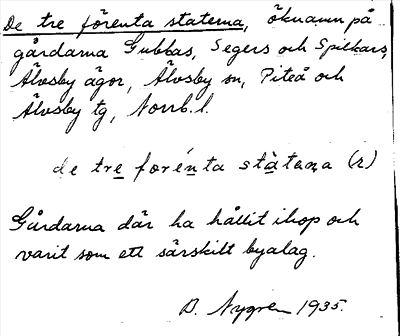 De tre förenta staterna, öknamn på
gårdarna Gubbas, Segers och Spikars,
Älvsby ägor, Älvsby sn, Piteå och
Älvsby tg, Norrb. l.
de tre forénta státana (r)
Gårdarna där ha hållit ihop och
varit som ett särskilt byalag.
B. Nygren 1935.